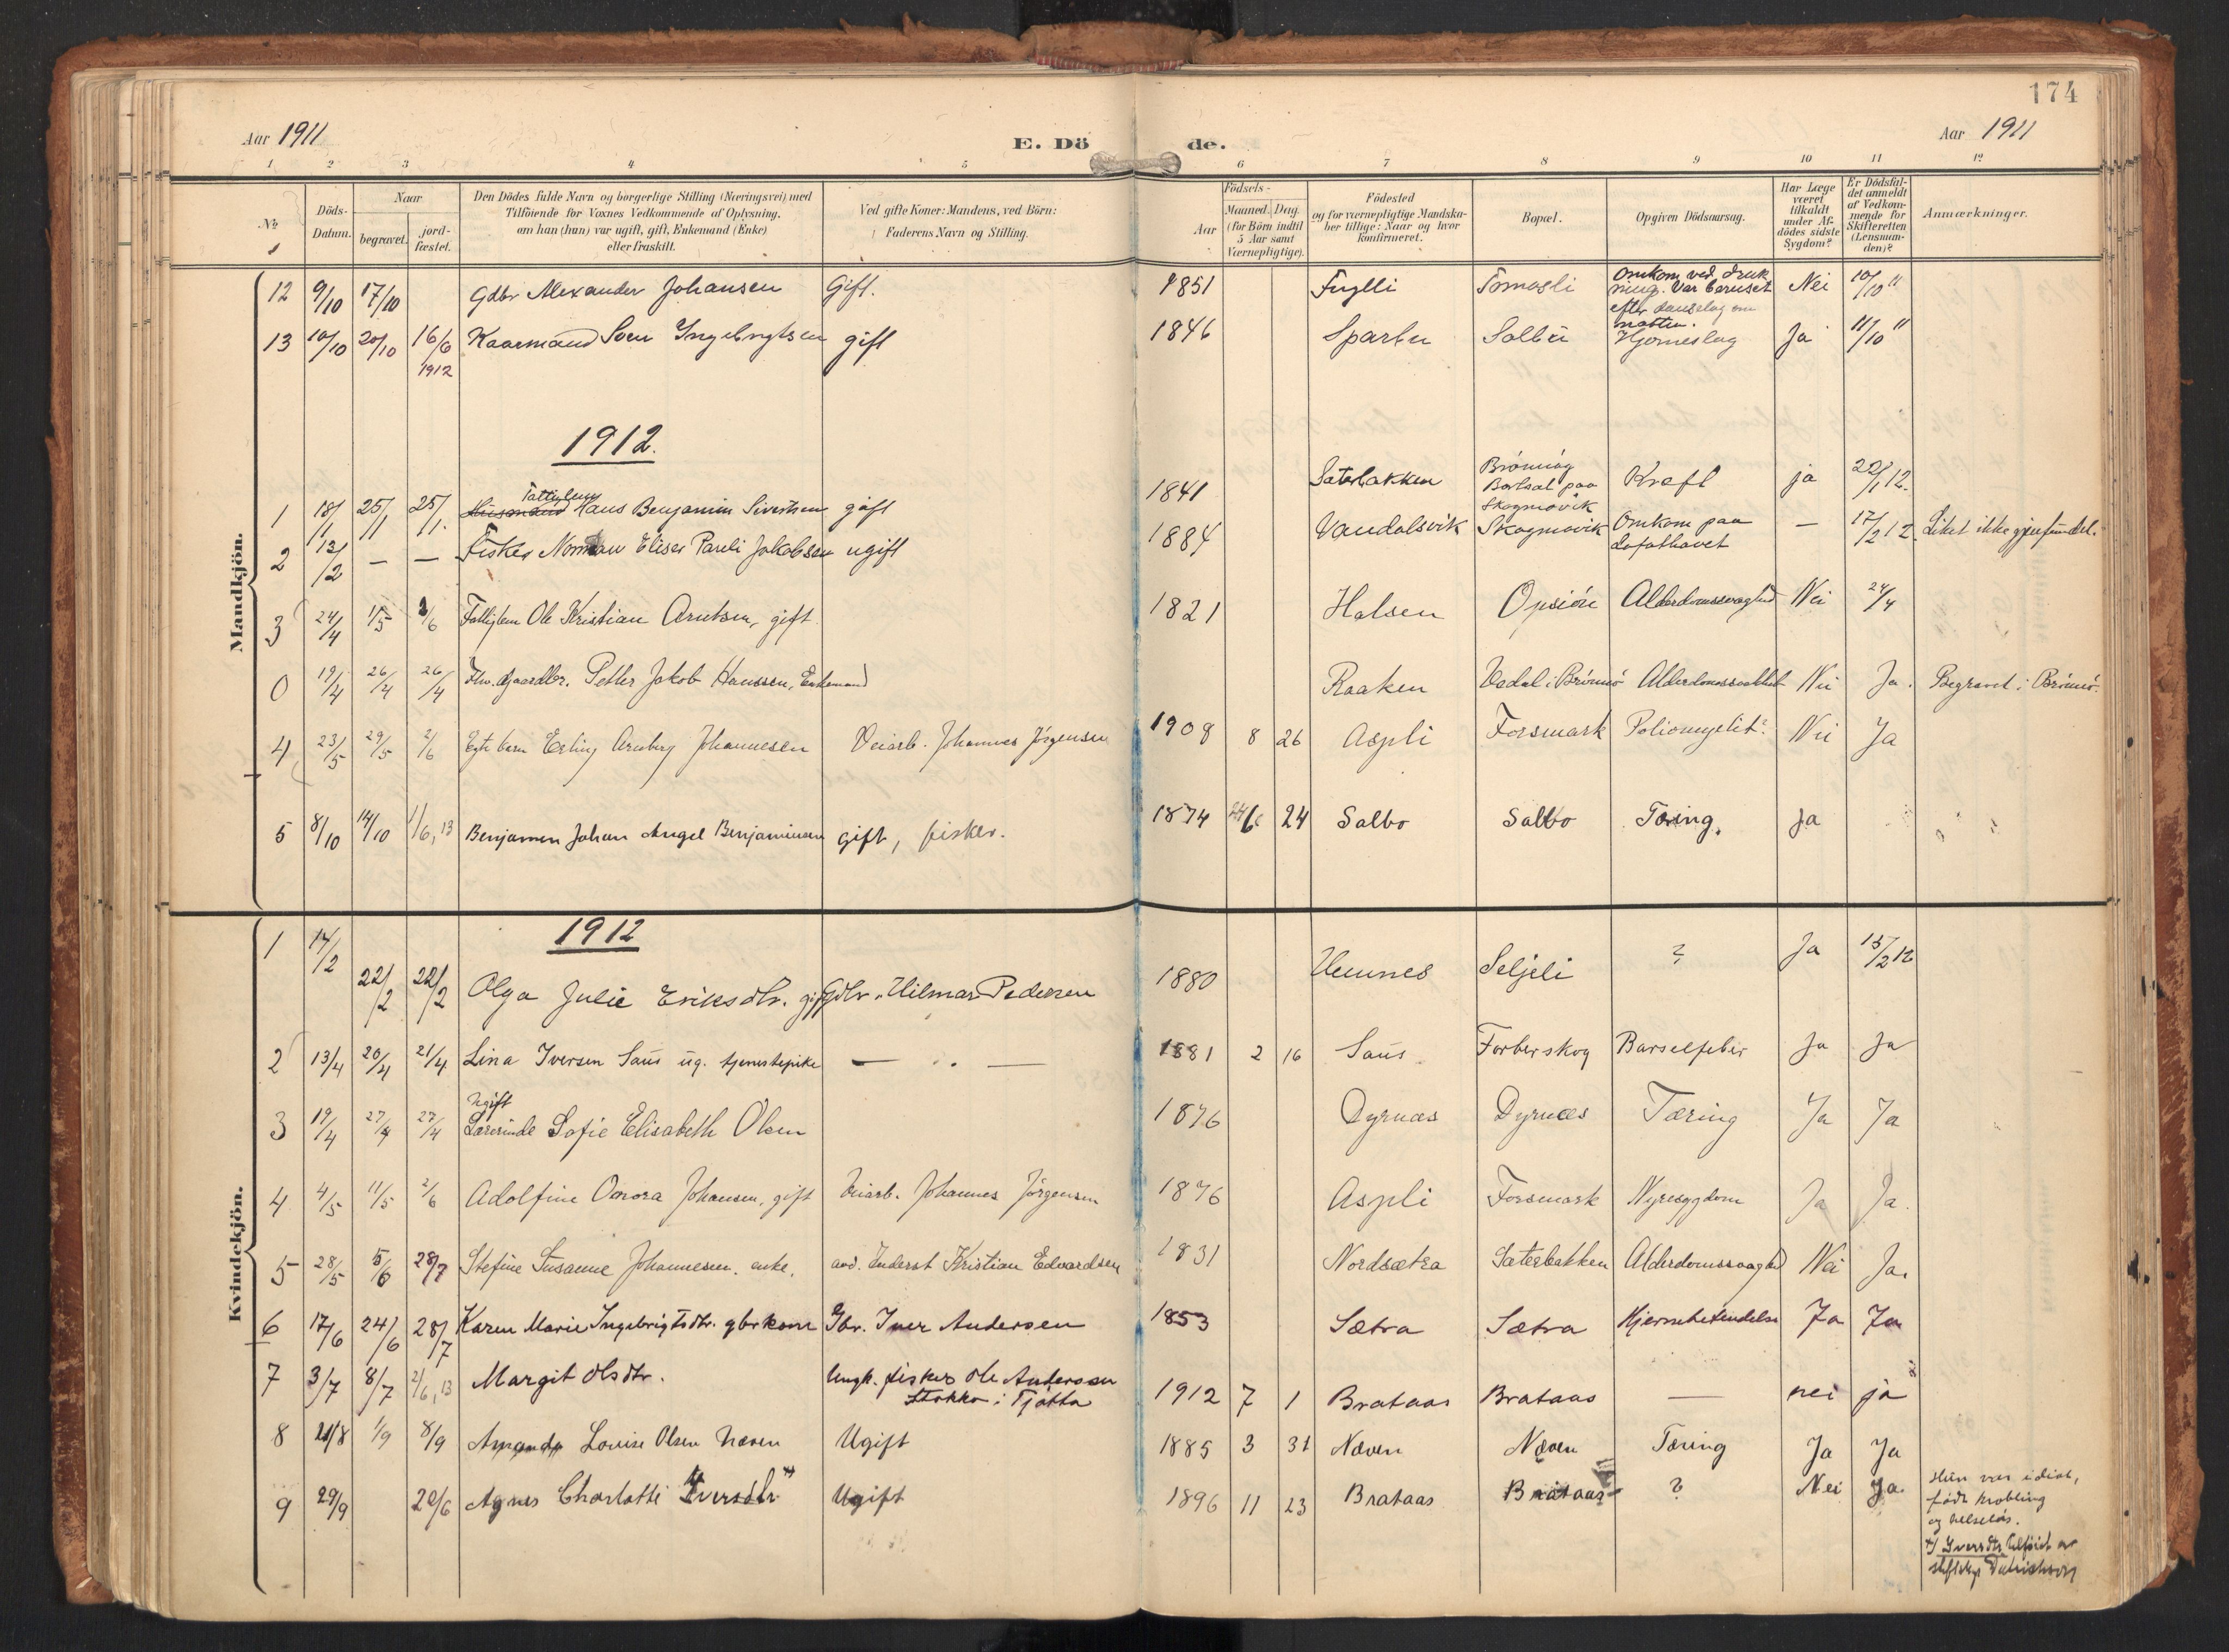 174
Aar 1911
E. Dö de.
Aar 1911
1 2 3 4 5 6 7 8 9 10 11 12
No
Döds-Datum.
Naar
begravet.
jord-fæstet.
Den Dödes fulde Navn og borgerlige Stilling (Næringsvei) med
Tilföiende for Voxnes Vedkommende af Oplysning,
om han (hun) var ugift, gift, Enkemand (Enke)
eller fraskilt.
Ved gifte Koner: Mandens, ved Börn:
Faderens Navn og Stilling.
Födsels-
Aar
Maaned. Dag.
(for Börn indtil
5 Aar samt
Værnepligtige).
Födested
og for værnepligtige Mandska-
ber tillige: Naar og hvor
konfirmeret.
Bopæl.
Opgiven Dödsaarsag.
Har Læge
været
tilkaldt
under Af-
dödes sidste
Sygdom?
Er Dödsfal-
det anmeldt
af Vedkom-
mende for
Skifteretten
(Lensman-
den)?
Anmærkninger.
Mandkjön.
12 9/10 17/10 Gdbr Alexander Johansen Gift. 1851 Fuglli Tomasli Omkom ved druk
ning. Var beruset
efter danselag om
natten. Nei 10/10 11
13 10/10 20/10 16/6 1912 Kaarmand Sven Ingebrigtsen gift 1846 Sparbu Salbu Hjerneslag Ja 11/10 11
1912.
1 18/1 25/1 25/1. Husmand Fattiglem Hans Benjamin Sivertsen gift 1841 Sæterbakken Brönnöy
Bortsat paa
Skagmovik Kræft ja 22/1 12.
2 12/2 — — Fisker Norman Eliser Pareli Jakobsen ugift 1884 Vandalsvik Skogmovik Omkom paa
Lofothavet — 17/2 12. Liket ikke gjenfundet.
3 24/4 1/5 2/6 Fattiglem Ole Kristian Arntsen, gift 1821 Halsen Opsjön Alderdomssvaghed Nei 24/4
0 19/4 26/4 26/4 Fhv. Gaardbr. Petter Jakob Hanssen, Enkemand Raaken Vedal i Brönnö Alderdomssvakhet Nei Ja. Begravet i Brönnö.
4 23/5 29/5 2/6 Egte barn Erling Arnberg Johannesen Veiarb. Johannes Jörgensen 1908 8 26 Aspli Forsmark Poliomyelit? Nei Ja
5 8/10 14/10 1/6, 13 Benjamen Johan Angel Benjaminsen gift, fisker. 1874 6 24 Salbo Salbo Tæring. Ja
Kvindekjön.
1912
1 14/2 22/2 22/2 Olga Julie Eriksdtr. gift Gdbr. Hilmar Pedersen 1880 Hemnes Seljeli ? Ja 15/2 12
2 13/4 20/4 21/4 Lina Iversen Saus ug. tjenestepike — — 1881 2 16 Saus Forberskog Barselfeber Ja Ja
3 19/4 27/4 27/4 Ugift
Lærerinde Sofie Elisabeth Olsen 1876 Dyrnæs Dyrnæs Tæring Ja Ja
4 4/5 11/5 2/6 Adolfine Onora Johansen, gift Veiarb. Johannes Jörgensen 1876 Aspli Forsmark Nyresygdom Ja Ja.
5 28/5 5/6 28/7 Stefine Susanne Johannesen. enke, avd. Inderst Kristian Edvardsen 1831 Nordsætra Sæterbakken Alderdomssvaghed Nei Ja.
6 17/6 24/6 28/7 Karen Marie Ingebrigtsdtr. gbrkone Gbr. Iver Andersen 1853 Sætra Sætra Hjernebetændelse Ja Ja
7 3/7 8/7 2/6, 13 Margit Olsdtr. Ungk. fisker Ole Andersen
Stokka i Tjötta 1912 7 1 Brataas Brataas — nei ja
8 21/8 1/9 8/9 Amanda Lovise Olsen Næven Ugift 1885 3 31 Næven Næven Tæring Ja Ja
9 29/9 20/6 Agnes Charlotte Iversdtr Ugift 1896 11 23 Brataas Brataas ? Nei Ja. Hun var idiot,
födt krobling
og helselös.
*) Iversdtr tilföiet av